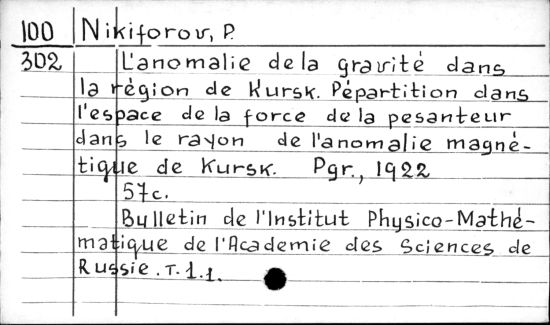 100 Nikiforov, P.
302 L'anomalie de la gravité dans
la région de Kursk. Pépartition dans
l'espace de la force de la pesanteur
dans le rayon de l'anomalie magné-
tique de Kursk. Pgr., 1922
57c.
Bulletin de l'Institut Physico-Mathé-
matique de l'Academie des Sciences de
Russie. T. 1.1.